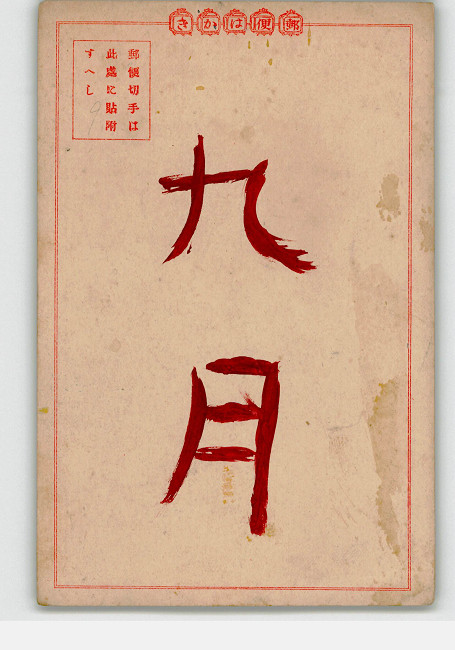 郵便はかき
郵便切手は
此處に貼附
すへし
九月